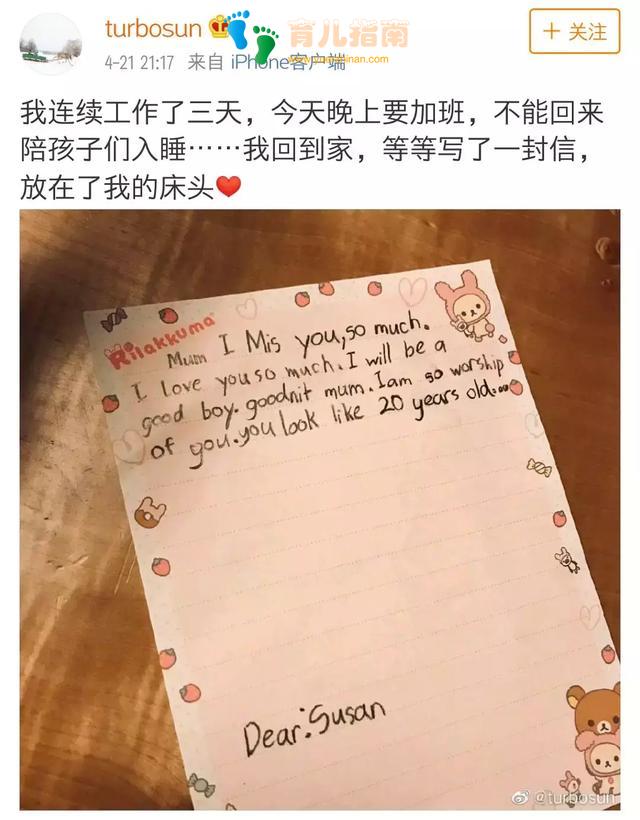 turbosun
育儿指南
+ 关注
4-21 21:17 来自 iPhone客户端
我连续工作了三天，今天晚上要加班，不能回来
陪孩子们入睡……我回到家，等等写了一封信，
放在了我的床头
Rilakkuma
Mum I Mis you,so much.
I love you so much.I will be a
good boy.goodnit mum.Iam so worship
of you.you look like 20 years old...
Dear:Susan
@turbosun